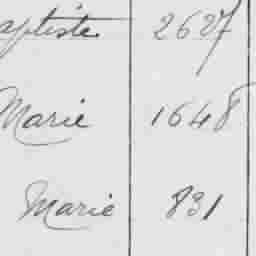 aptiste 2627
Marie 1648
Marie 831